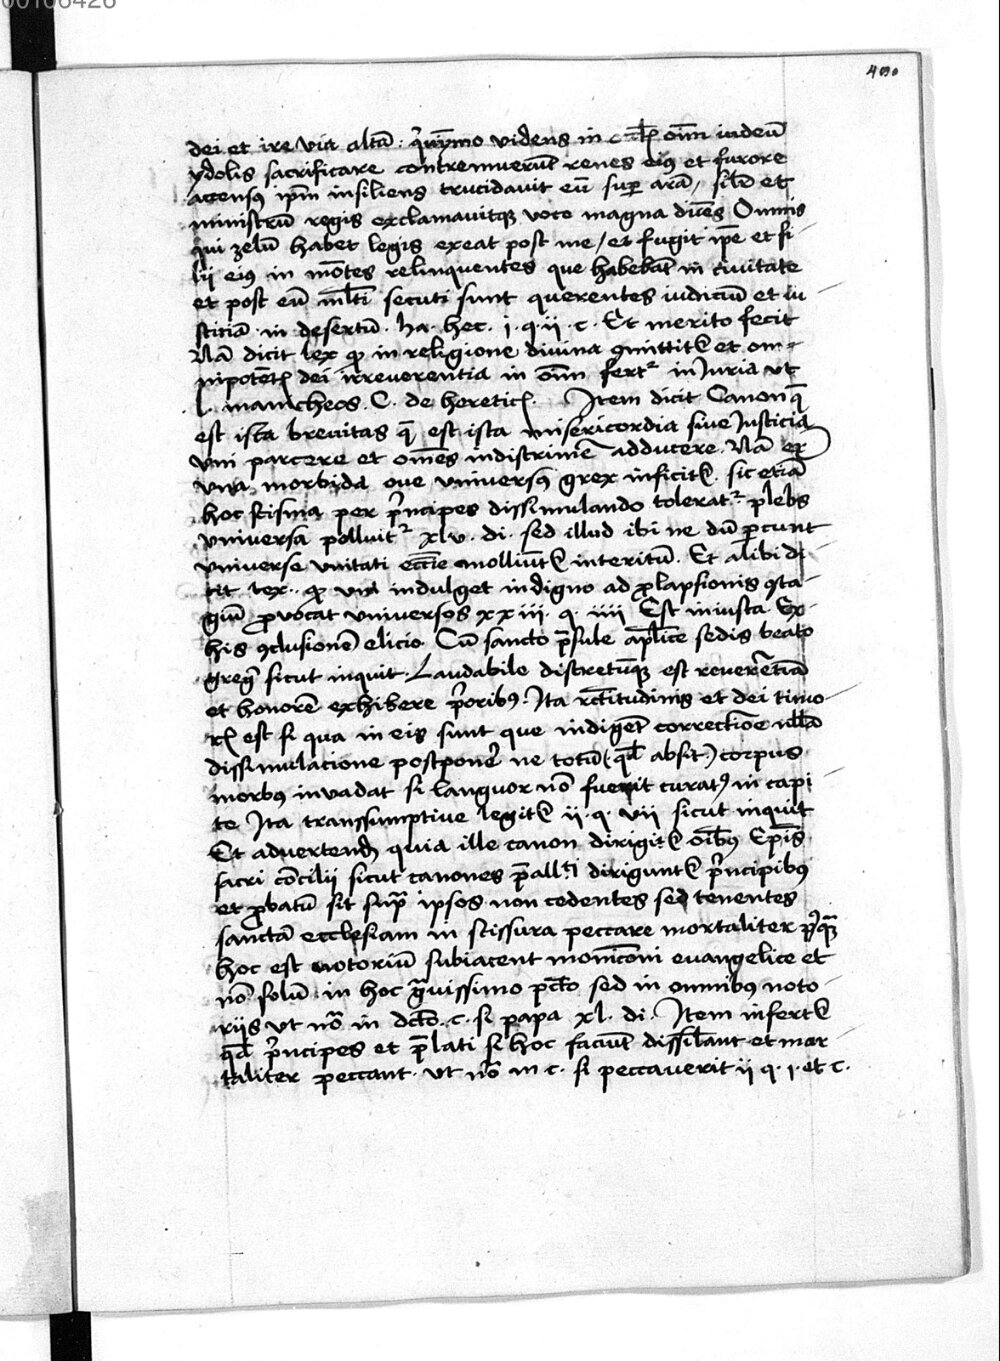 00106426
400
dei et ire via altā : qͥnÿmo videns in om̄m iudeū
ydolis sacrificare contremuerūt renes eiꝰ et furore
accensꝰ ip̄m insiliens trucidavit eū suꝑ arā / sil̄r et
ministrū regis exclamavitqꝫ voce magna dicēs Omnis
qui zelū habet legis exeat post me / et fugit ip̄e et fi-
lii eiꝰ in mōtes relinquentes que habebāt in civitate
et post eū ml̄ti secuti sunt querentes iudiciū et iu-
sticiā in desertū . ha. hec . i . q . ii . c . Et merito fecit
Nā dicit lex ꝙ in religione divina ꝯmittitᷣ et om-
nipotētꝭ dei irreverentia in om̄ fertᷣ iniuria ut
l. manicheos . C . de hereticꝭ . Item dicit Canon q̄
est ista brevitas q̄ est ista misericordia sive Iusticia
vni parcere et om̄es in discrimē adducere . Nā ex
vna morbida ove universꝰ grex inficitᷣ . sic etiā
hoc scisma per pͥncipes dissimulando toleratᷣ plebs
vniversa polluitᷣ xlv . di . sed illud ibi ne dū ꝑcunt
vniverse vnitati ecc̄ie moliunt interitū . Et alibi di-
cit lex . ꝙ vna indulget indigno ad ꝓlapsionis ꝯta-
giū ꝓvocat vniversos xxiii . q . iiii Est iniusta Ex
his ꝯclusionē elicio . Cū sancto p̄sule ap̄lice sedis beato
gregͦ sicut inquit . Laudabile discretūqꝫ est reverētiā
et honorē exhibere pͥoribꝰ . Ita rc̄titudinis et dei timo-
rꝭ est si qua in eis sunt que indigēt correctiōe nll̄a
dissimulacione postponeͬ ne totū (qd̄ absit) corpus
morbꝰ invadat si languor nō fuerit curatꝰ in capi-
te Ita transsumptive legitᷣ ii . q . vii sicut inquit
Et advertendū quia ille canon dirigitᷣ om̄ibꝰ Ep̄is
sacri cōcilii sicut canones p̄all̄ti diriguntᷣ pͥncipibꝰ
et ꝓbatū sit supᷓ ipsos non cedentes sed tenentes
sanctā ecclesiam in scissura peccare mortaliter pͥqᷓꝫ
hoc est notoriū subiacent monic̄oni evangelice et
nō solū in hoc gᷓvissimo pc̄to sed in omnibus noto-
riis vt nō in dc̄o . c . si papa xl . di . Item infertᷣ
qd̄ pͥncipes et p̄lati si hoc faciūt dissil̄ant et mor-
taliter peccant . vt nō in c . si peccaverit ii q . i . et c .